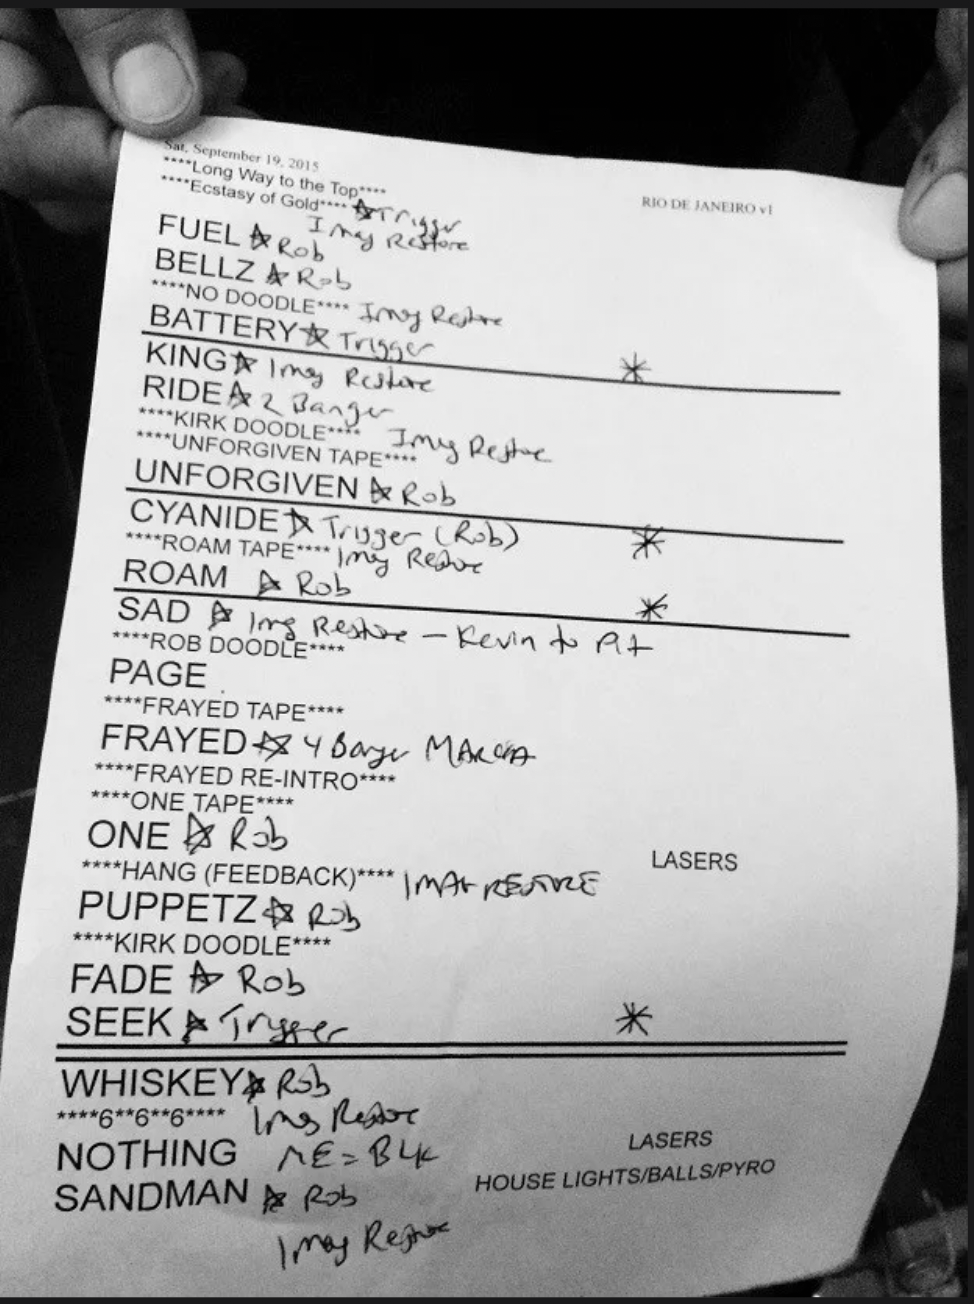 Sat, September 19, 2015
****Long Way to the Top****
RIO DE JANEIRO v1
****Ecstasy of Gold**** Trigger
Imag Restore
FUEL Rob
BELLZ Rob
****NO DOODLE**** Imag Restore
BATTERY Trigger *
KING Imag Restore
RIDE 2 Banger
****KIRK DOODLE**** Imag Restore
****UNFORGIVEN TAPE****
UNFORGIVEN Rob
CYANIDE Trigger (Rob) *
****ROAM TAPE**** Imag Restore
ROAM Rob *
SAD Imag Restore - Kevin to Pit
****ROB DOODLE****
PAGE
****FRAYED TAPE****
FRAYED 4 Banger
****FRAYED RE-INTRO****
****ONE TAPE****
ONE Rob LASERS
****HANG (FEEDBACK)**** IMAG RESTORE
PUPPETZ Rob
****KIRK DOODLE****
FADE Rob
SEEK Trigger *
WHISKEY Rob
****6**6**6**** Imag Restore
NOTHING = BLK LASERS
SANDMAN Rob HOUSE LIGHTS/BALLS/PYRO
Imag Restore